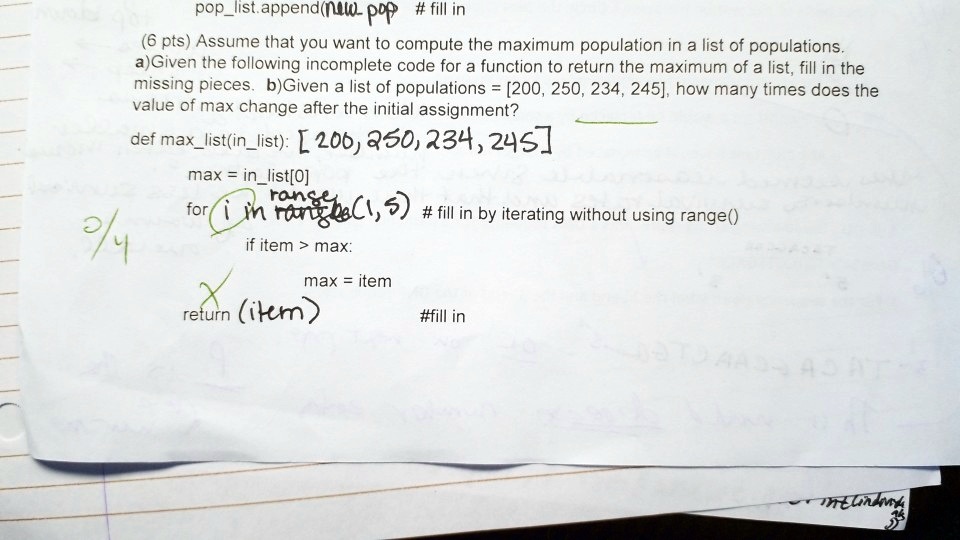 pop_list.append(new pop # fill in
(6 pts) Assume that you want to compute the maximum population in a list of populations.
a)Given the following incomplete code for a function to return the maximum of a list, fill in the
missing pieces. b)Given a list of populations = [200, 250, 234, 245], how many times does the
value of max change after the initial assignment?
def max_list(in_list): [200, 250, 234, 245]
max = in_list[0]
range
for i in (1, 5) # fill in by iterating without using range()
0/4
if item > max:
max = item
X
return (item) #fill in